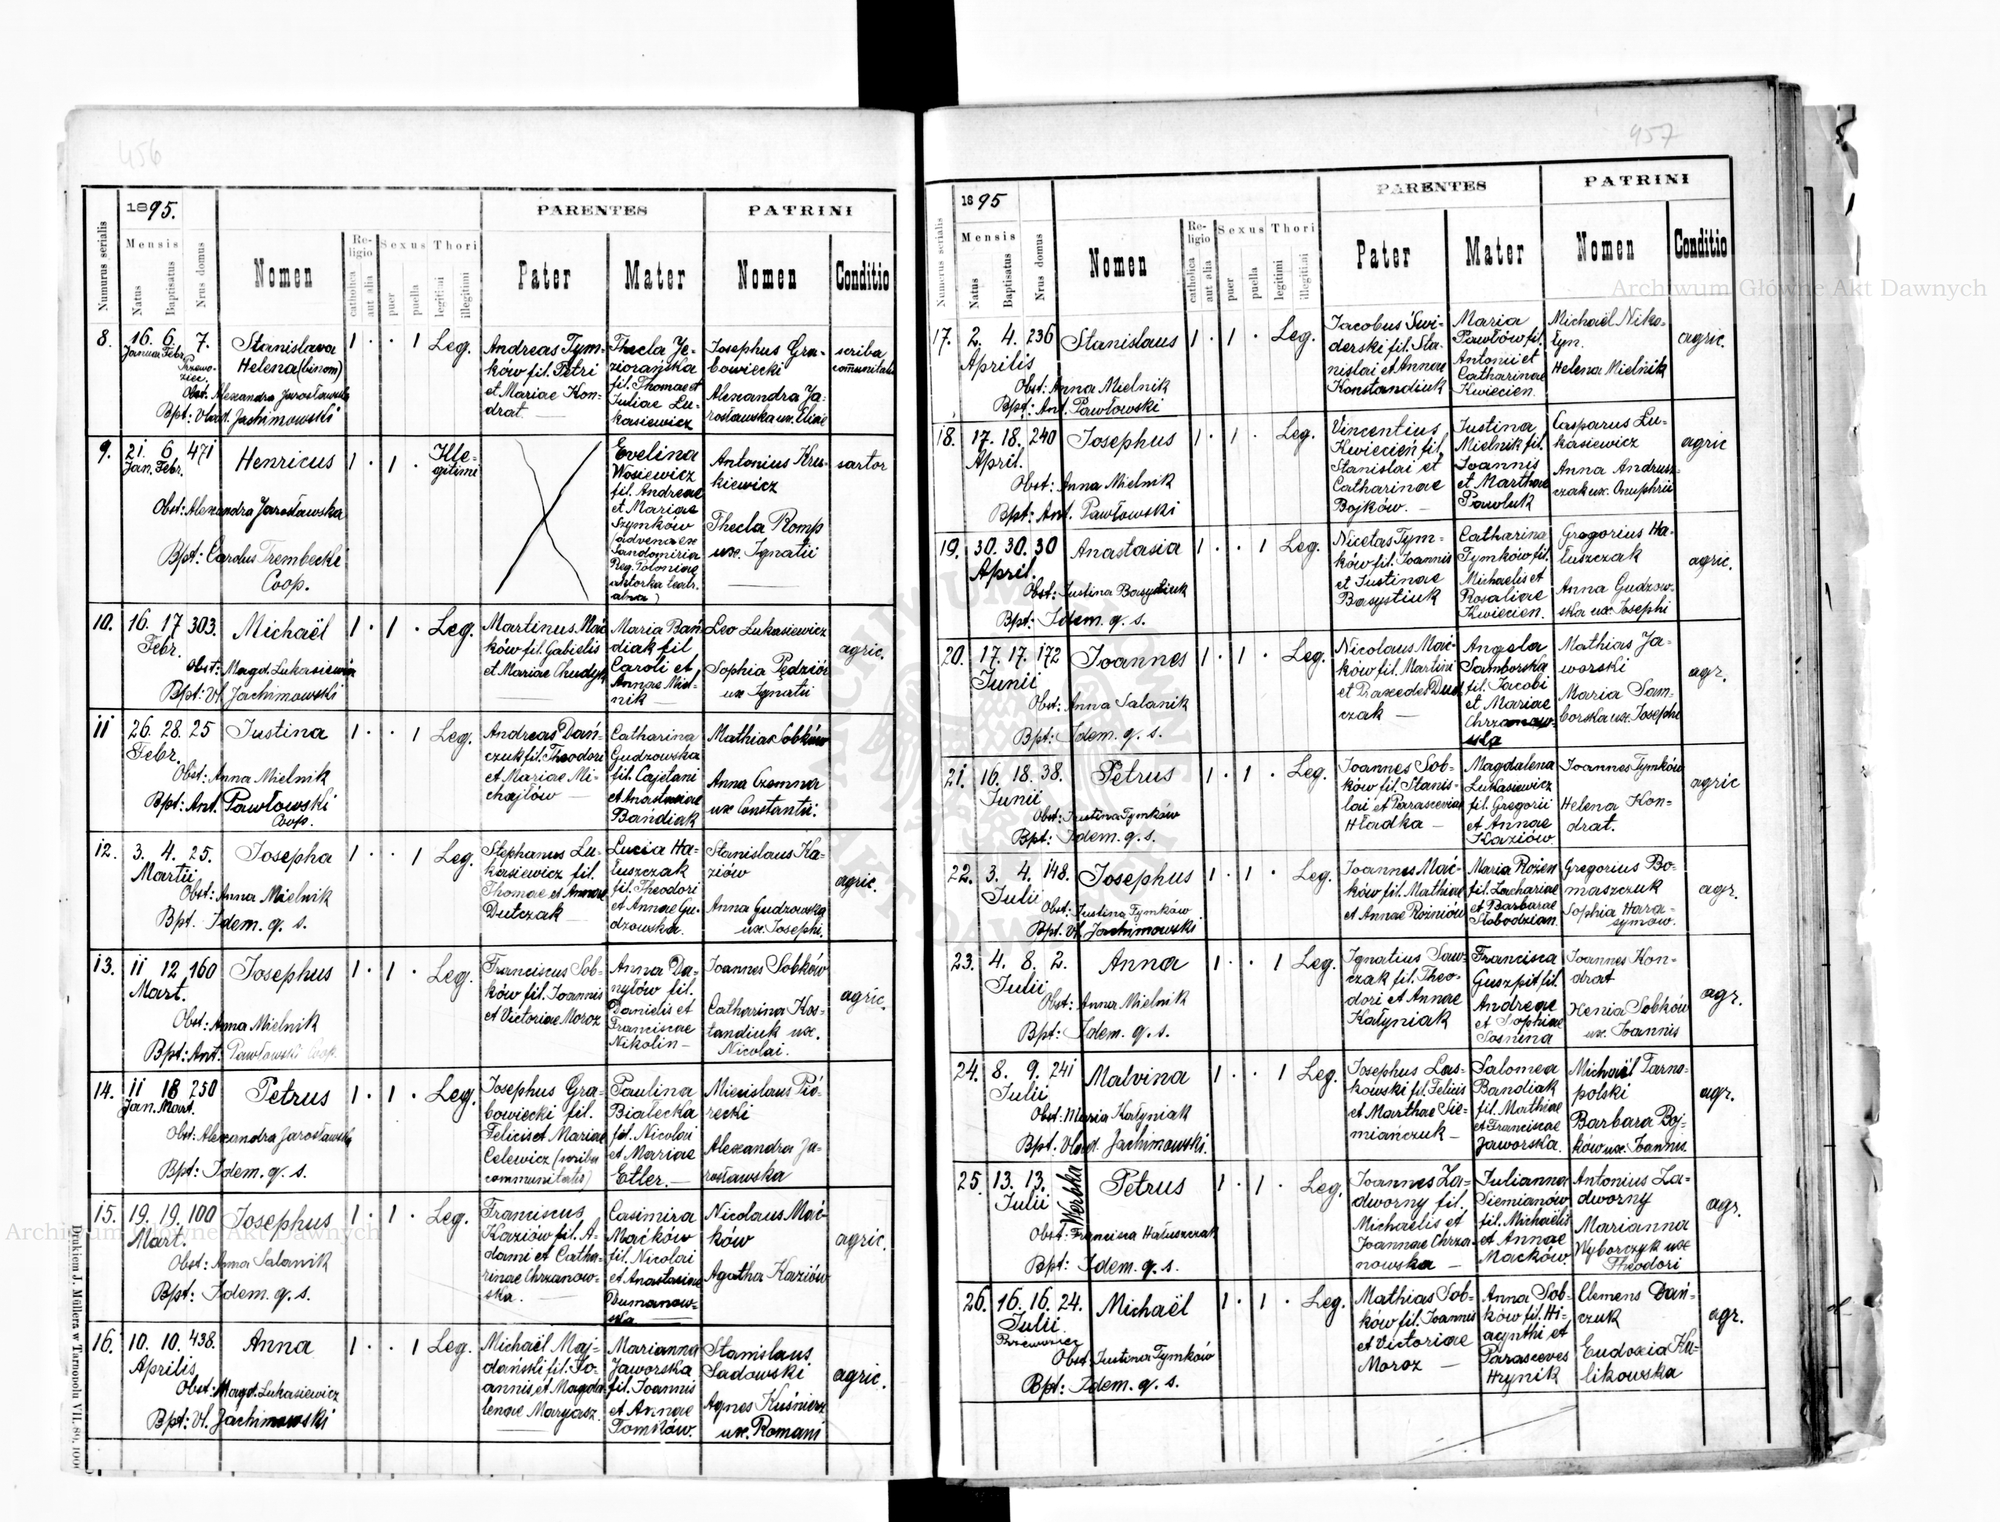 456
1895.
PARENTES
PATRINI
Numurus serialis
Mensis
Natus
Baptisatus
Nrus domus
Nomen
Religio
catholica
aut alia
Sexus
puer
puella
Thori
legitimi
illegitimi
Pater
Mater
Nomen
Conditio
8. 16. 6. 7. Stanislava 1 · · 1 Leg.
Januar Febr. Helena (binom)
Przewoziec.
Obst: Alexandra Jarosławska
Bpt: Vlad. Jachimowski
Andreas Tym-
ków fil. Petri
et Mariae Kon-
drat —
Thecla Je-
ziorańska
fil. Thomae et
Juliae Łu-
kasiewicz
Josephus Gra-
bowiecki
Alexandra Ja-
rosławska ux. Eliae
scriba
communitatis
9. 21. 6 471 Henricus 1 · 1 · Ille-
gitimi
Jan. Febr.
Obst: Alexandra Jarosławska
Bpt: Carolus Trembecki
Coop.
Evelina
Wosiewicz
fil. Andreae
et Mariae
Szymków
(advena ex
Sandomiria
Reg. Poloniae
aktorka teatr-
alna)
Antonius Kru-
kiewicz
Thecla Romp
ux. Ignatii
sartor
10. 16. 17 303. Michaël 1 · 1 · Leg.
Febr.
Obst: Magd. Łukasiewicz
Bpt: Vl. Jachimowski
Martinus Mać-
ków fil. Gabrielis
et Mariae Chudyk
Maria Bań-
diak fil
Caroli et
Annae Miel-
nik —
Leo Łukasiewicz
Sophia Pędziór
ux Ignatii
agric.
11 26. 28. 25 Justina 1 · · 1 Leg.
Febr.
Obst: Anna Mielnik
Bpt: Ant. Pawłowski
Coop.
Andreas Dań-
czuk fil. Theodori
et Mariae Mi-
chajłów —
Catharina
Gudzowska
fil. Cajetani
et Anastasiae
Bandiak
Mathias Sobków
Anna Czorna
ux Constantii.
12. 3. 4. 25. Josepha 1 · · 1 Leg.
Martii
Obst: Anna Mielnik
Bpt: Idem. q. s.
Stephanus Łu-
kasiewicz fil.
Thomae et Annae
Dutczak —
Lucia Ha-
łuszczak
fil. Theodori
et Annae Gu-
dzowska.
Stanislaus Ka-
ziów
Anna Gudzowska
ux. Josephi.
agric.
13. 11 12 160 Josephus 1 · 1 · Leg.
Mart.
Obst: Anna Mielnik
Bpt: Ant: Pawłowski Coop.
Franciscus Sob-
ków fil. Joannis
et Victoriae Moroz
Anna Da-
nyłów fil.
Danielis et
Franciscae
Nikolin —
Joannes Sobków
Catharina Kos-
tandiuk ux.
Nicolai.
agric.
14. 11 18 250 Petrus 1 · 1 · Leg.
Jan. Mart.
Obst: Alexandra Jarosławska
Bpt: Idem. q. s.
Josephus Gra-
bowiecki fil.
Felicis et Mariae
Celewicz (scriba
communitatis)
Paulina
Białecka
fil. Nicolai
et Mariae
Etler. —
Miecislaus Pió-
recki
Alexandra Ja-
rosławska
15. 19. 19. 100 Josephus 1 · 1 · Leg.
Mart.
Obst: Anna Salanik
Bpt: Idem. q. s.
Franciscus
Kaziów fil. A-
dami et Catha-
rinae Chrzanow-
ska. —
Casimira
Maćków
fil. Nicolai
et Anastasiae
Nicolaus Mać-
ków
Agatha Kaziów
agric.
16. 10. 10. 438. Anna 1 · · 1 Leg.
Aprilis
Obst: Magd. Łukasiewicz
Bpt: Vl. Jachimowski
Michaël Maj-
dański fil. Jo-
annis et Magda
lenae Maryasz.
Marianna
Jaworska
fil. Joannis
et Annae
Tomków.
Stanislaus
Sadowski
Agnes Kuśnierz
ux. Romani
agric.
Drukiem J. Müllera w Tarnopolu VII. 89. 1000
457
1895
PARENTES
PATRINI
Numerus serialis
Mensis
Natus
Baptisatus
Nrus domus
Nomen
Religio
catholica
aut alia
Sexus
puer
puella
Thori
legitimi
illegitimi
Pater
Mater
Nomen
Conditio
17. 2. 4. 236 Stanislaus 1 · 1 · Leg.
Aprilis
Obst: Anna Mielnik
Bpt: Ant. Pawłowski
Jacobus Świ-
derski fil. Sta-
nislai et Annae
Konstandiuk
Maria
Pawłów fil.
Antonii et
Catharinae
Kwiecien.
Michaël Niko-
łyn.
Helena Mielnik
agric.
18. 17. 18. 240 Josephus 1 · 1 · Leg.
April.
Obst: Anna Mielnik
Bpt: Ant. Pawłowski
Vincentius
Kwiecień fil.
Stanislai et
Catharinae
Bojków. —
Justina
Mielnik fil.
Joannis
et Marthae
Pawluk
Casparus Łu-
kasiewicz
Anna Andrusz-
czak ux. Onuphrii
agric
19. 30. 30. 30 Anastasia 1 · · 1 Leg.
April.
Obst: Justina Basystiuk
Bpt: Idem. q. s.
Nicetas Tym-
ków fil. Joannis
et Justinae
Basystiuk
Catharina
Tymków fil.
Michaelis et
Rosaliae
Kwiecien.
Gregorius Ha-
łuszczak
Anna Gudzow-
ska ux. Josephi
agric.
20. 17. 17. 172 Joannes 1 · 1 · Leg.
Junii
Obst: Anna Salanik
Bpt: Idem. q. s.
Nicolaus Mać-
ków fil. Martini
et Praxedes Dud
czak —
Angela
Samborska
fil. Jacobi
et Mariae
Chrzanow-
ska
Mathias Ja-
worski
Maria Sam-
borska ux. Josephi
agr.
21. 16. 18. 38. Petrus 1 · 1 · Leg.
Junii
Obst: Justina Tymków
Bpt: Idem. q. s.
Joannes Sob-
ków fil. Stanis-
lai et Parasceviae
Hładka —
Magdalena
Łukasiewicz
fil. Gregorii
et Annae
Kaziów.
Joannes Tymków
Helena Kon-
drat.
agric
22. 3. 4. 148. Josephus 1 · 1 · Leg.
Julii
Obst: Justina Tymków
Bpt. Vl. Jachimowski
Joannes Mać-
ków fil. Mathiae
et Annae Rożniów
Maria Rożen
fil. Zachariae
et Barbarae
Słobodzian.
Gregorius Ro-
maszczuk
Sophia Hara-
symów.
agr.
23. 4. 8. 2. Anna 1 · · 1 Leg.
Julii
Obst: Anna Mielnik
Bpt: Idem. q. s.
Ignatius Saw-
czak fil. Theo-
dori et Annae
Kałyniak
Francisca
Guszpit fil.
Andreae
et Sophiae
Sosnina
Joannes Kon-
drat
Xenia Sobków
ux. Joannis
agr.
24. 8. 9. 241 Malvina 1 · · 1 Leg.
Julii
Obst: Maria Kałyniak
Bpt: Vlad. Jachimowski.
Josephus Las-
kowski fil. Felicis
et Marthae Sie-
miańczuk —
Salomea
Bandiak
fil. Mathiae
et Franciscae
Jaworska.
Michaël Tarno-
polski
Barbara Boj-
ków ux. Joannis.
agr.
25. 13. 13. Werbka Petrus 1 · 1 · Leg.
Julii
Obst: Francisca Hałuszczak
Bpt: Idem. q. s.
Joannes Za-
dworny fil.
Michaëlis et
Joannae Chrza-
nowska —
Julianna
Siemianów
fil. Michaëlis
et Annae
Maćków.
Antonius Za-
dworny
Marianna
Wyborczyk ux
Theodori
agr.
26. 16. 16. 24. Michaël 1 · 1 · Leg.
Julii
Przewoziec
Obst: Justina Tymków
Bpt: Idem. q. s.
Mathias Sob-
ków fil. Joannis
et Victoriae
Moroz —
Anna Sob-
ków fil. Hi-
acynthi et
Parasceves
Hrynik
Clemens Dań-
czuk
Eudoxia Ku-
likowska
agr.
Archiwum Główne Akt Dawnych
Archiwum Główne Akt Dawnych